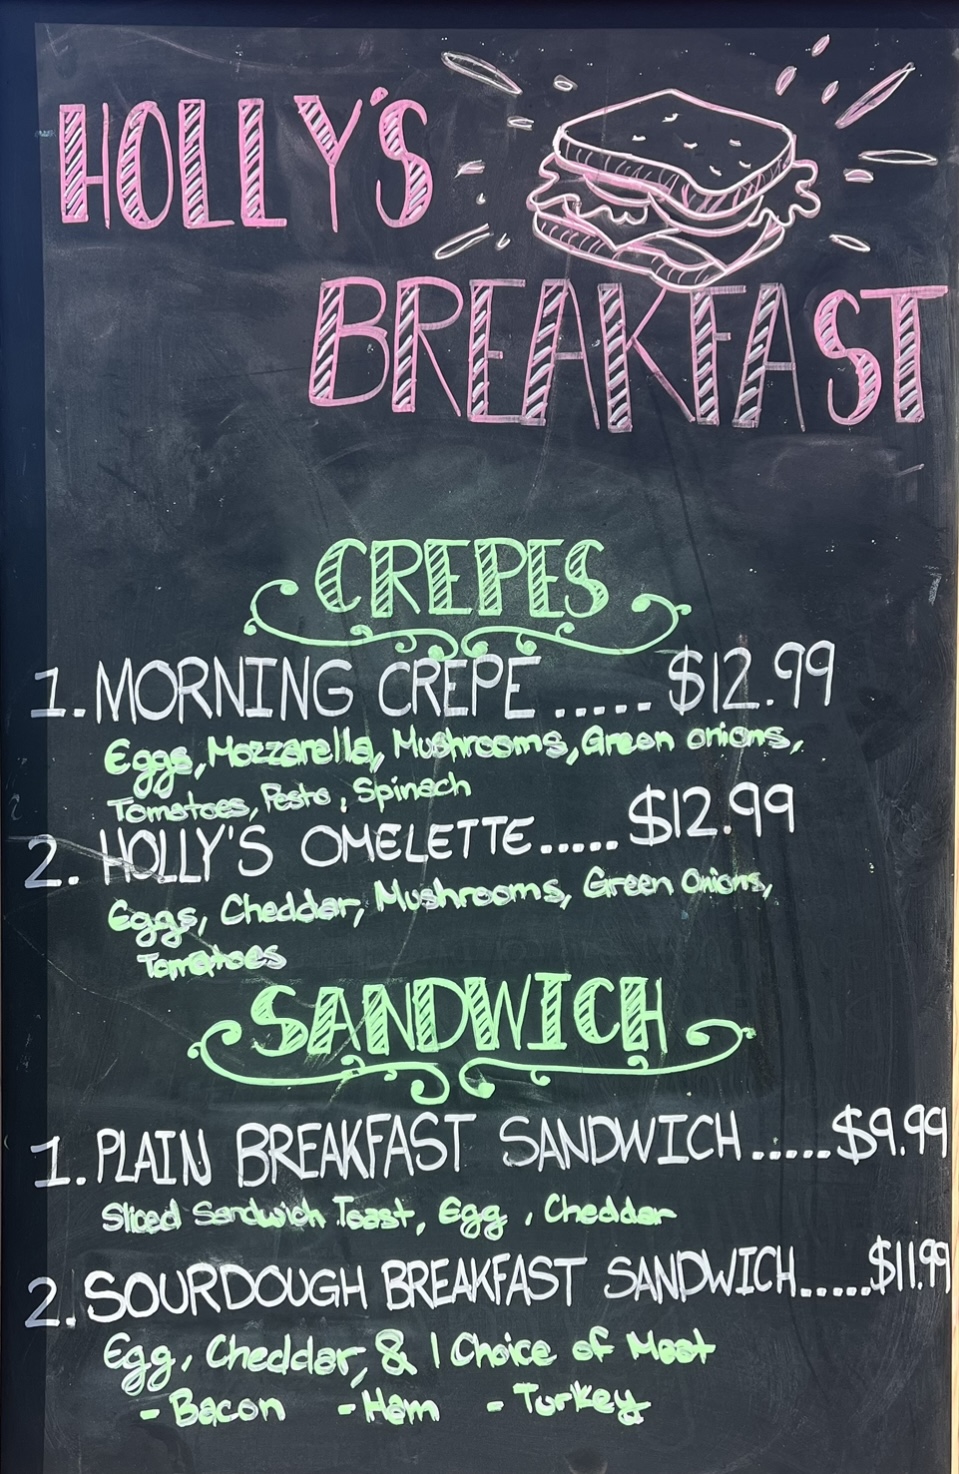 HOLLY'S
BREAKFAST
CREPES
1. MORNING CREPE ..... $12.99
Eggs, Mozzarella, Mushrooms, Green onions,
Tomatoes, Pesto, Spinach
2. HOLLY'S OMELETTE ..... $12.99
Eggs, Cheddar, Mushrooms, Green Onions,
Tomatoes
SANDWICH
1. PLAIN BREAKFAST SANDWICH ..... $9.99
Sliced Sandwich Toast, Egg, Cheddar
2. SOURDOUGH BREAKFAST SANDWICH ..... $11.99
Egg, Cheddar, & 1 Choice of Meat
- Bacon - Ham - Turkey